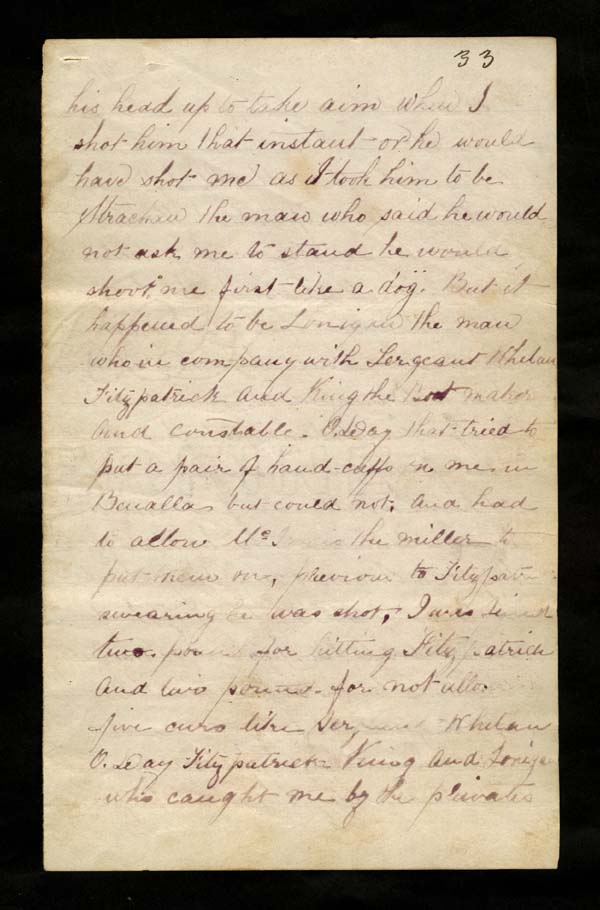 33
his head up to take aim when I
shot him that instant or he would
have shot me as I took him to be
Strachan the man who said he would
not ask me to stand he would
shoot me first like a dog. But it
happened to be Lonigan the man
who in company with Sergeant Whelan
Fitzpatrick and King the Boot maker
and constable. O.Day that tried to
put a pair of hand-cuffs on me in
Benalla but could not. and had
to allow Mc the miller to
put them on, previous to Fitzpatrick
swearing he was shot, I was fined
two pounds for hitting Fitzpatrick
and two pounds for not allowing
five curs like Sergeant Whelan
O.Day Fitzpatrick King and Lonigan
who caught me by the privates